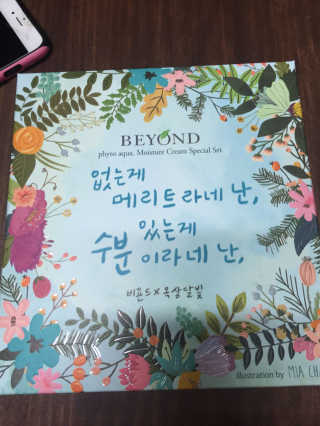 BEYOND
phyto aqua. Moisture Cream Special Set
없는게
메리트라네 난,
있는게
수분이라네 난,
비욘드 x 옥상달빛
illustration by MIA